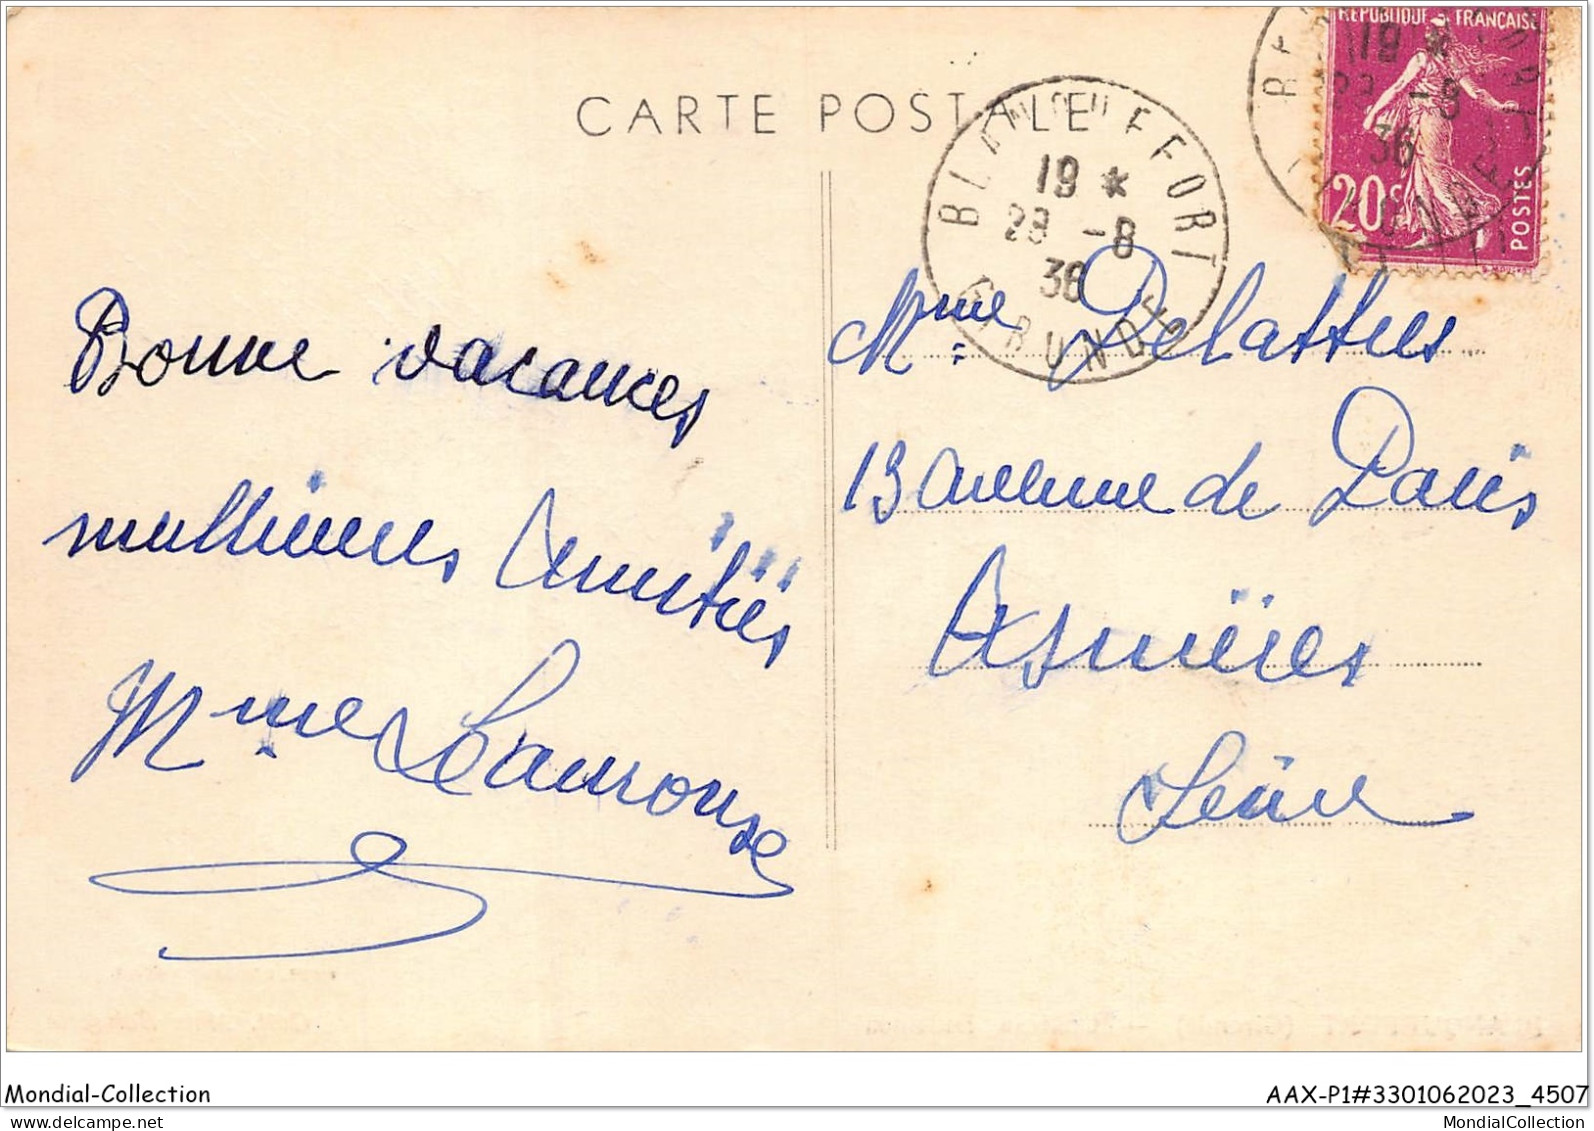 CARTE POSTALE
RÉPUBLIQUE FRANÇAISE
20c
POSTES
BLANQUEFFORT
19 *
28 -8
36
GIRONDE
Bonne vacances
meillieures Amitiés
Mme Lamrouse
Mme Delattres
13 avenue de Paris
Asnières
Seine
Mondial-Collection
AAX-P1#3301062023_4507
MondialCollection